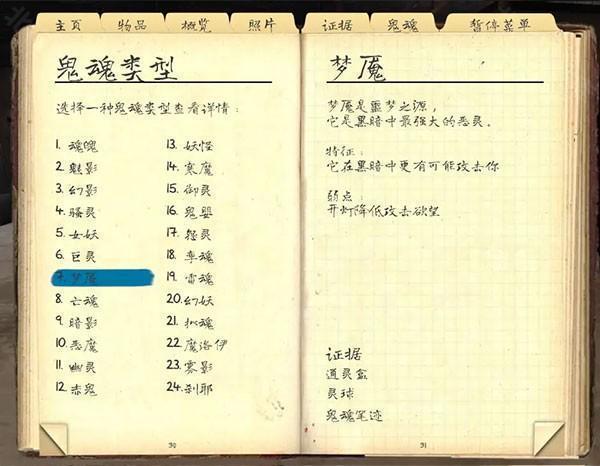 主页 物品 概览 照片 证据 鬼魂 暂停菜单
鬼魂类型
选择一种鬼魂类型查看详情：
1. 魂魄
2. 魅影
3. 幻影
4. 骚灵
5. 女妖
6. 巨灵
7. 梦魇
8. 亡魂
9. 暗影
10. 恶魔
11. 幽灵
12. 赤鬼
13. 妖怪
14. 寒魔
15. 御灵
16. 鬼婴
17. 怨灵
18. 孪魂
19. 雷魂
20. 幻妖
21. 拟魂
22. 魔洛伊
23. 雾影
24. 刹耶
30
梦魇
梦魇是噩梦之源，
它是黑暗中最强大的恶灵。
特征：
它在黑暗中更有可能攻击你
弱点：
开灯降低攻击欲望
证据
通灵盒
灵球
鬼魂笔迹
31